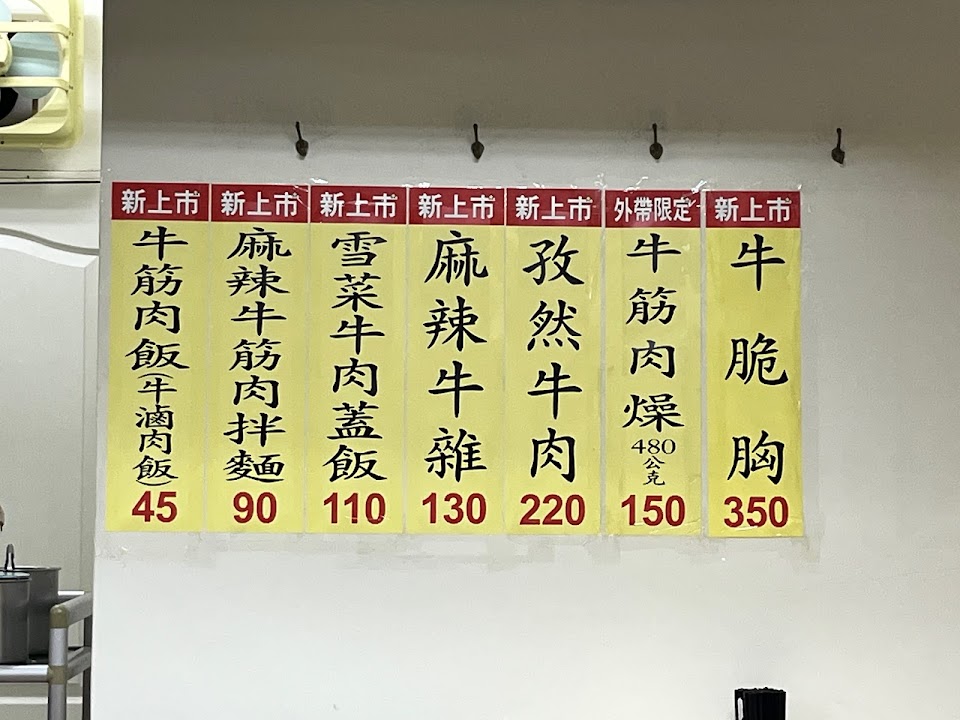 新上市
牛筋肉飯(牛滷肉飯)
45
新上市
麻辣牛筋肉拌麵
90
新上市
雪菜牛肉蓋飯
110
新上市
麻辣牛雜
130
新上市
孜然牛肉
220
外帶限定
牛筋肉燥
480公克
150
新上市
牛脆胸
350